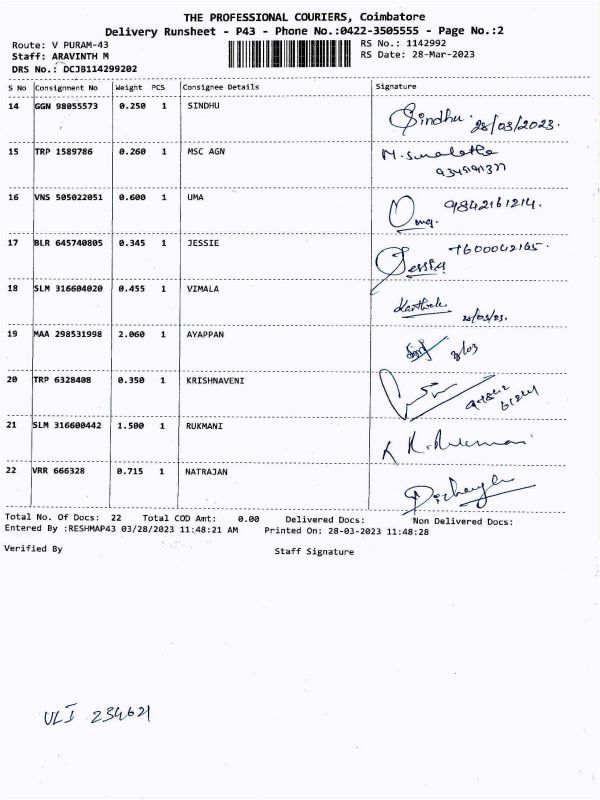 THE PROFESSIONAL COURIERS, Coimbatore
Delivery Runsheet - P43 - Phone No.:0422-3505555 - Page No.:2
Route: V PURAM-43 RS No.: 1142992
Staff: ARAVINTH M RS Date: 28-Mar-2023
DRS No.: DCJB114299202
S No Consignment No Weight PCS Consignee Details Signature
14 GGN 98055573 0.250 1 SINDHU Sindhu 28/03/2023.
15 TRP 1589786 0.260 1 MSC AGN
16 VNS 505022051 0.600 1 UMA Uma. 9842161214.
17 BLR 645740805 0.345 1 JESSIE Jessie 7600042165.
18 SLM 316604020 0.455 1 VIMALA 28/03/23.
19 MAA 298531998 2.060 1 AYAPPAN
20 TRP 6328408 0.350 1 KRISHNAVENI
21 SLM 316600442 1.500 1 RUKMANI
22 VRR 666328 0.715 1 NATRAJAN
Total No. Of Docs: 22 Total COD Amt: 0.00 Delivered Docs: Non Delivered Docs:
Entered By :RESHMAP43 03/28/2023 11:48:21 AM Printed On: 28-03-2023 11:48:28
Verified By Staff Signature
ULI 234621